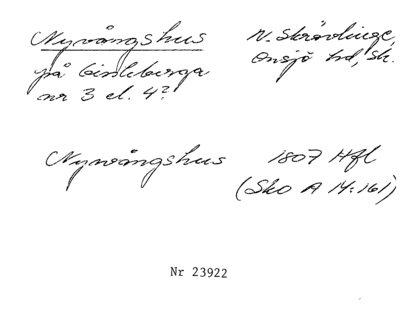 Nyvångshus
N. Skrävlinge,
på Gissleberga
Onsjö hd, Sk.
nr 3 el. 4?
Nyvångshus
1807 Hfl
(Sko A 14:161)
Nr 23922